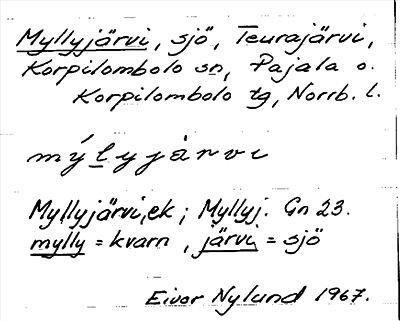 Myllyjärvi, sjö, Teurajärvi,
Korpilombolo sn, Pajala o.
Korpilombolo tg, Norrb. l.
mýlyjärvi
Myllyjärvi, ek; Myllyj. Gn 23.
mylly = kvarn, järvi = sjö
Eivor Nylund 1967.